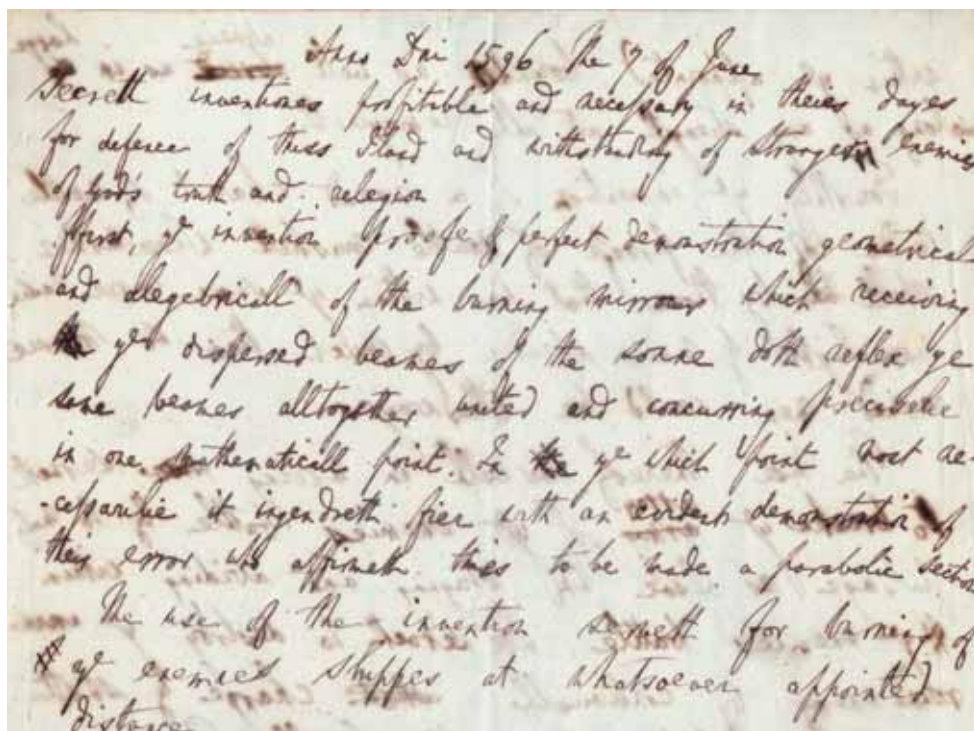 Anno Dni 1596 The 7 of June
Secrett inventiones profitible and necessary in theies dayes
for defence of thiss Iland and withstanding of strangers enemies
of God's truth and religion
ffirst, ye invention proofe & perfect demonstration geometricall
and alegebricall of the burning mirrour which receiving
ye dispersed beames of the sonne doth reflex ye
same beames alltogether united and concurring preciselie
in one mathematicall point. In ye which point most ne-
-cessarilie it ingendreth fier with an evident demonstration of
their error who affirmeth thies to be made a parabolic section
The use of the invention serveth for burning of
ye enemies shippes at whatsoever appointed
distance